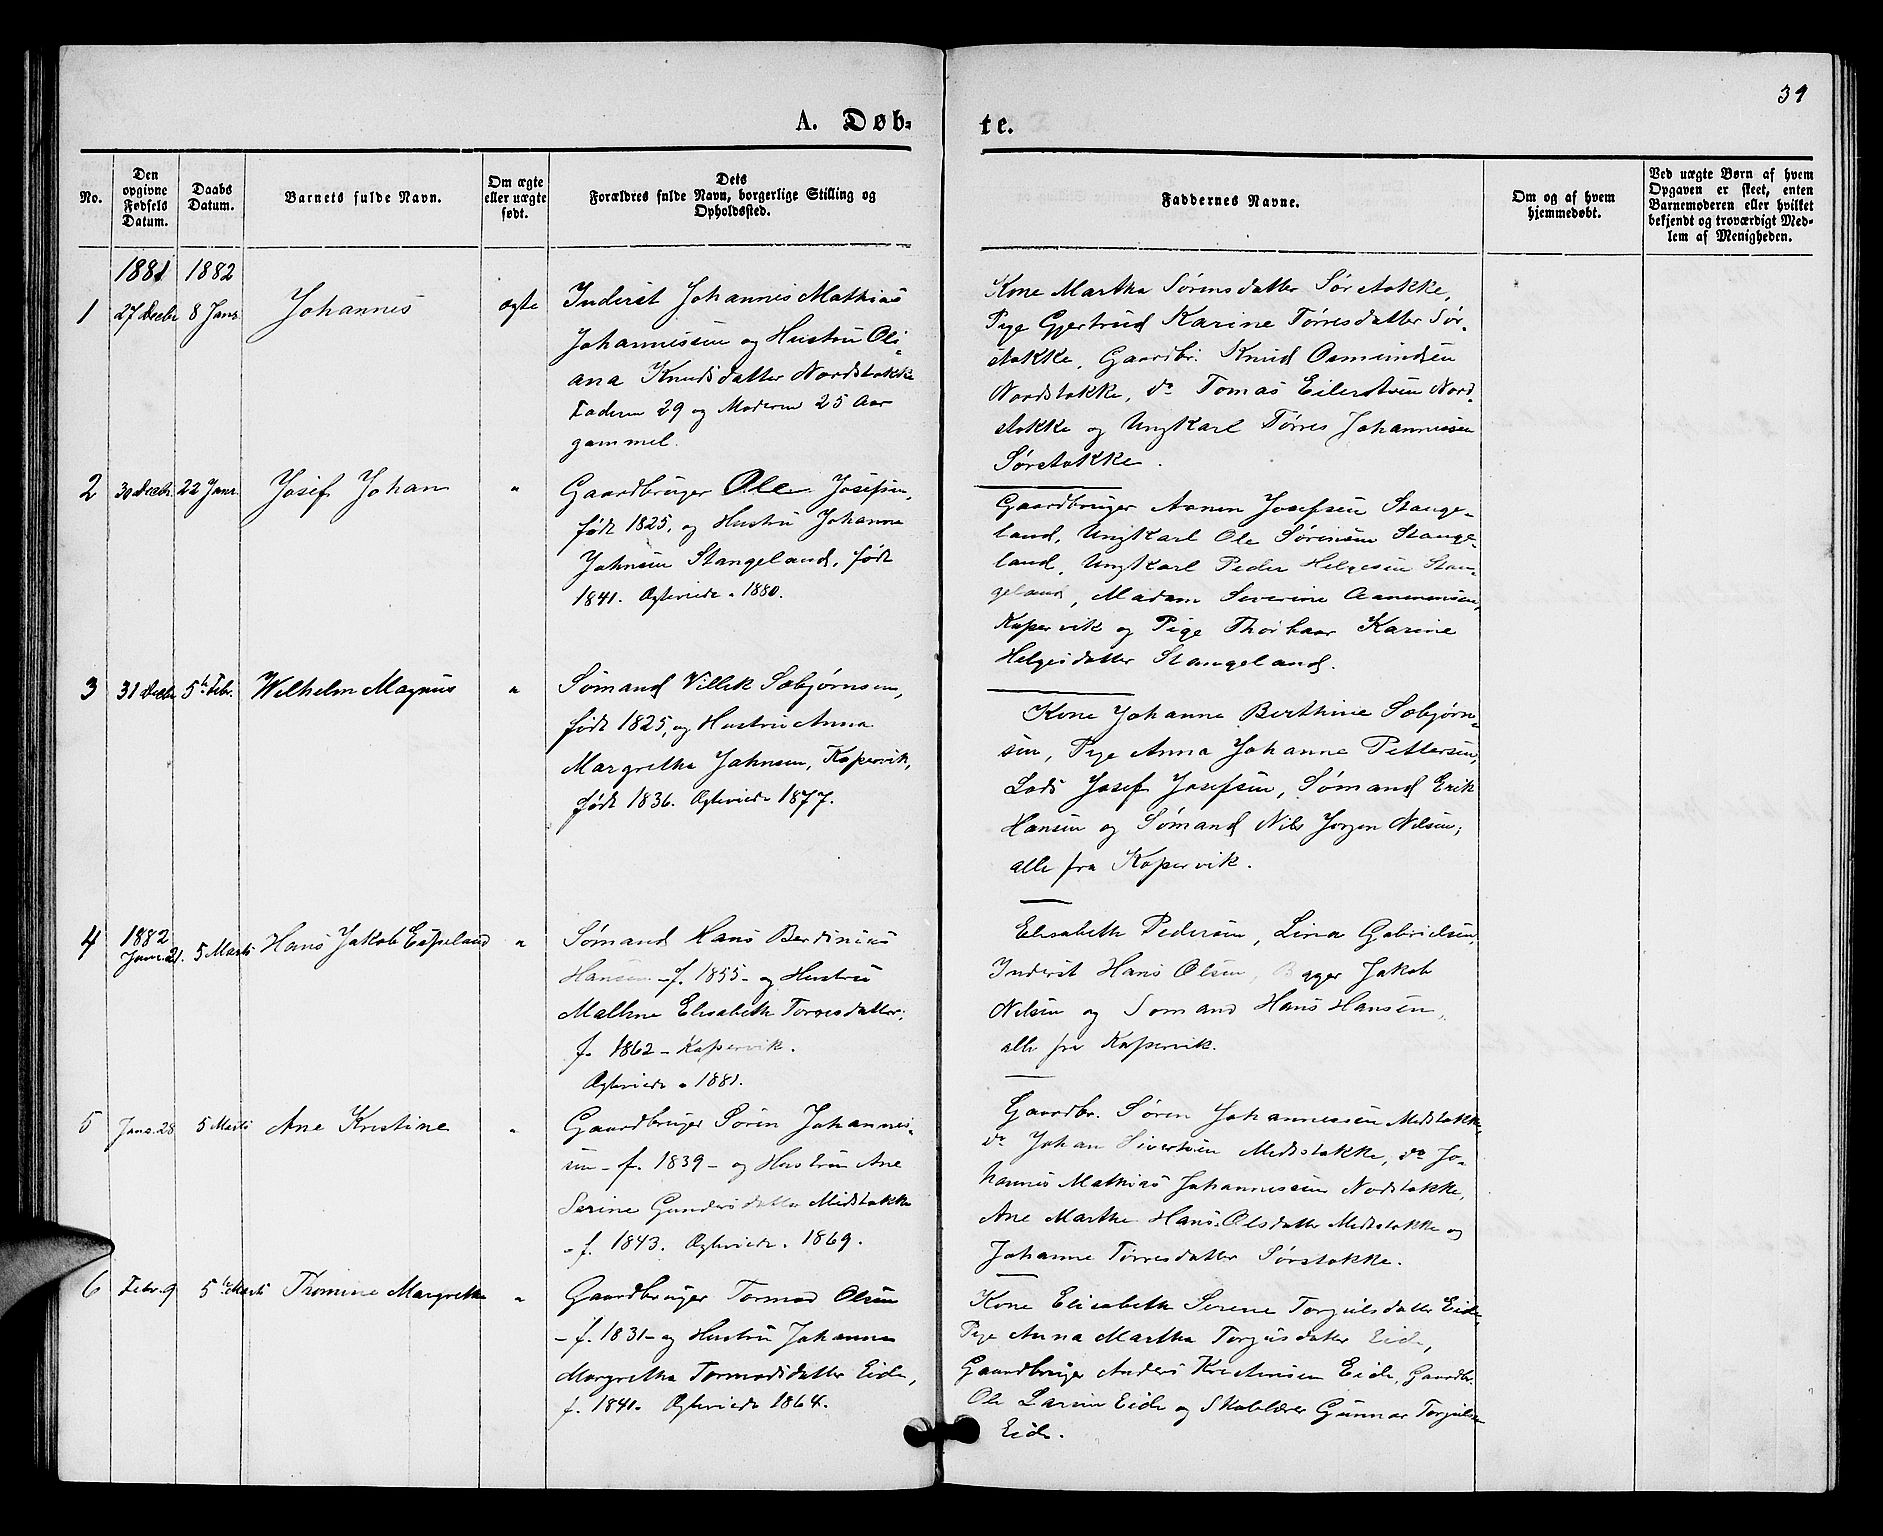 39
A. Døb=
te.
No.
Den opgivne Fødsels Datum.
Daabs Datum.
Barnets fulde Navn.
Om ægte eller uægte født.
Dets Forældres fulde Navn, borgerlige Stilling og Opholdssted.
Faddernes Navne.
Om og af hvem hjemmedøbt.
Ved uægte Børn af hvem Opgaven er skeet, enten Barnemoderen eller hvilket bekjendt og troværdigt Medlem af Menigheden.
1881 1882
1 27 Decbr 8 Janr. Johannes ægte
Inderst Johannes Mathias
Johannessen og Hustru Oli=
ana Knudsdatter Nordstokke
Faderen 29 og Moderen 25 Aar
gammel.
Kone Martha Sørensdatter Sørstokke,
Pige Gjertrud Karine Tørresdatter Sør=
stokke, Gaardbr. Knud Osmundsen
Nordstokke, do Tomas Eilertsen Nord=
stokke og Ungkarl Tørres Johannessen
Sørstokke.
2 30 Decbr. 22 Janr. Josef Johan "
Gaardbruger Ole Josefsen,
født 1825, og Hustru Johanne
Johnsen Stangeland, født
1841. Ægteviede 1880.
Gaardbruger Aanen Josefsen Stange=
land, Ungkarl Ole Sørensen Stange=
land, Ungkarl Peder Helgesen Stan=
geland, Madam Severine Aanensen,
Kopervik og Pige Thorbaar Karine
Helgesdatter Stangeland.
3 31 Decbr 5te Febr. Wilhelm Magnus "
Sømand Villik Sæbjørnsen,
født 1825, og Hustru Anna
Margretha Johnsen, Kopervik,
født 1836. Ægteviede 1877.
Kone Johanne Berthine Sæbjørn=
sen, Pige Anna Johanne Pettersen,
Lods Josef Josefsen, Sømand Erik
Hansen og Sømand Nils Jørgen Nilsen,
alle fra Kopervik.
4 1882 Janr. 21. 5 Marts Hans Jakob Espeland "
Sømand Hans Berdinius
Hansen - f. 1855 - og Hustru
Malene Elisabeth Torresdatter,
f. 1862 - Kopervik.
Ægteviede 1881.
Elisabeth Pedersen, Lina Gabrielsen,
Inderst Hans Olsen, Jakob
Nilsen og Sømand Hans Hansen,
alle fra Kopervik.
5 Janr. 28 5 Marts Ane Kristine "
Gaardbruger Søren Johannes=
sen - f. 1839 - og Hustru Ane
Serine Gundersdatter Midstokke
- f. 1843. Ægteviede 1869.
Gaardbr. Søren Johannessen Midstokke,
do Johan Sivertsen Midstokke, do Jo=
hannes Mathias Johannessen Nordstokke,
Ane Marthe Hans Olsdatter Midstokke og
Johanne Tørresdatter Sørstokke.
6 Febr. 9 5te Marts Tromine Margrethe "
Gaardbruger Tormod Olsen
- f. 1831 - og Hustru Johanna
Margretha Tormodsdatter Eide,
f. 1841. Ægteviede 1864.
Kone Elisabeth Serene Torgilsdatter Eide
Pige Anna Martha Torgilsdatter Eide,
Gaardbruger Anders Kristensen Eide, Gaardbr.
Ole Larsen Eide og Skolelærer Gunnar Torgilsen
Eide.